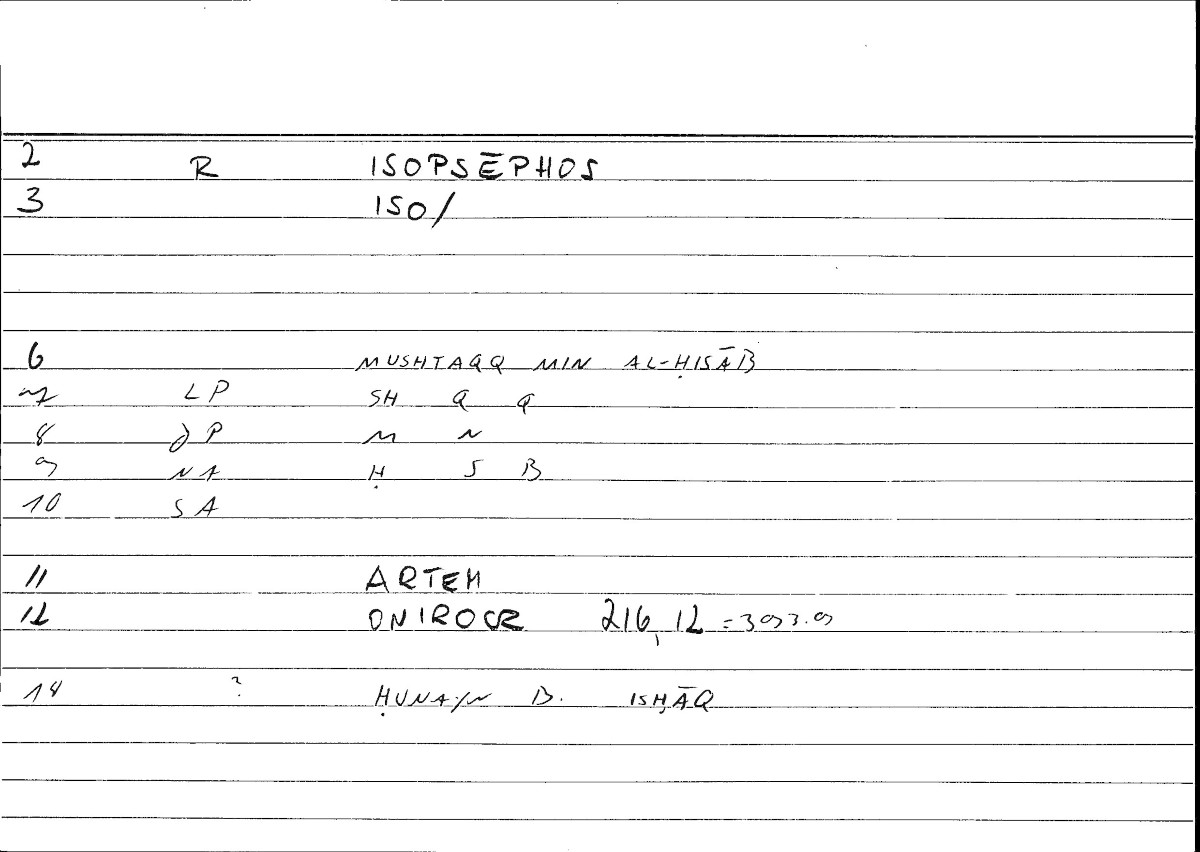 2 R ISOPSĒPHOS
3 ISO/
6 MUSHTAQQ MIN AL-ḤISĀB
7 LP SH Q Q
8 JP M N
9 NA Ḥ S B
10 SA
11 ARTEM
12 ONIROCR 216,12 = 393.9
14 ? ḤUNAYN B. ISḤĀQ